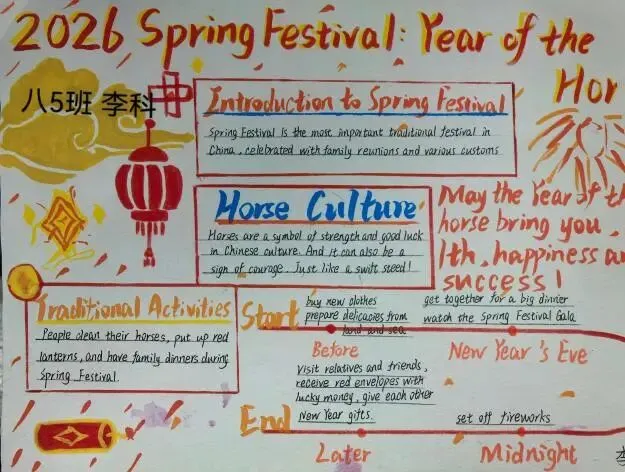 2026 Spring Festival: Year of the
Hor
八5班 李科
Introduction to Spring Festival
Spring Festival is the most important traditional festival in
China, celebrated with family reunions and various customs
Horse Culture
Horses are a symbol of strength and good luck
in Chinese culture. And it can also be a
sign of courage. Just like a swift steed!
May the Year of th
horse bring you,
lth, happiness an
success!
Traditional Activities
People clean their horses, put up red
lanterns, and have family dinners during
Spring Festival.
Start
buy new clothes
prepare delicacies from
land and sea
get together for a big dinner
watch the Spring Festival Gala
Before
New Year's Eve
visit relatives and friends,
receive red envelopes with
lucky money, give each other
New Year gifts.
End
set off fireworks
Later
Midnight